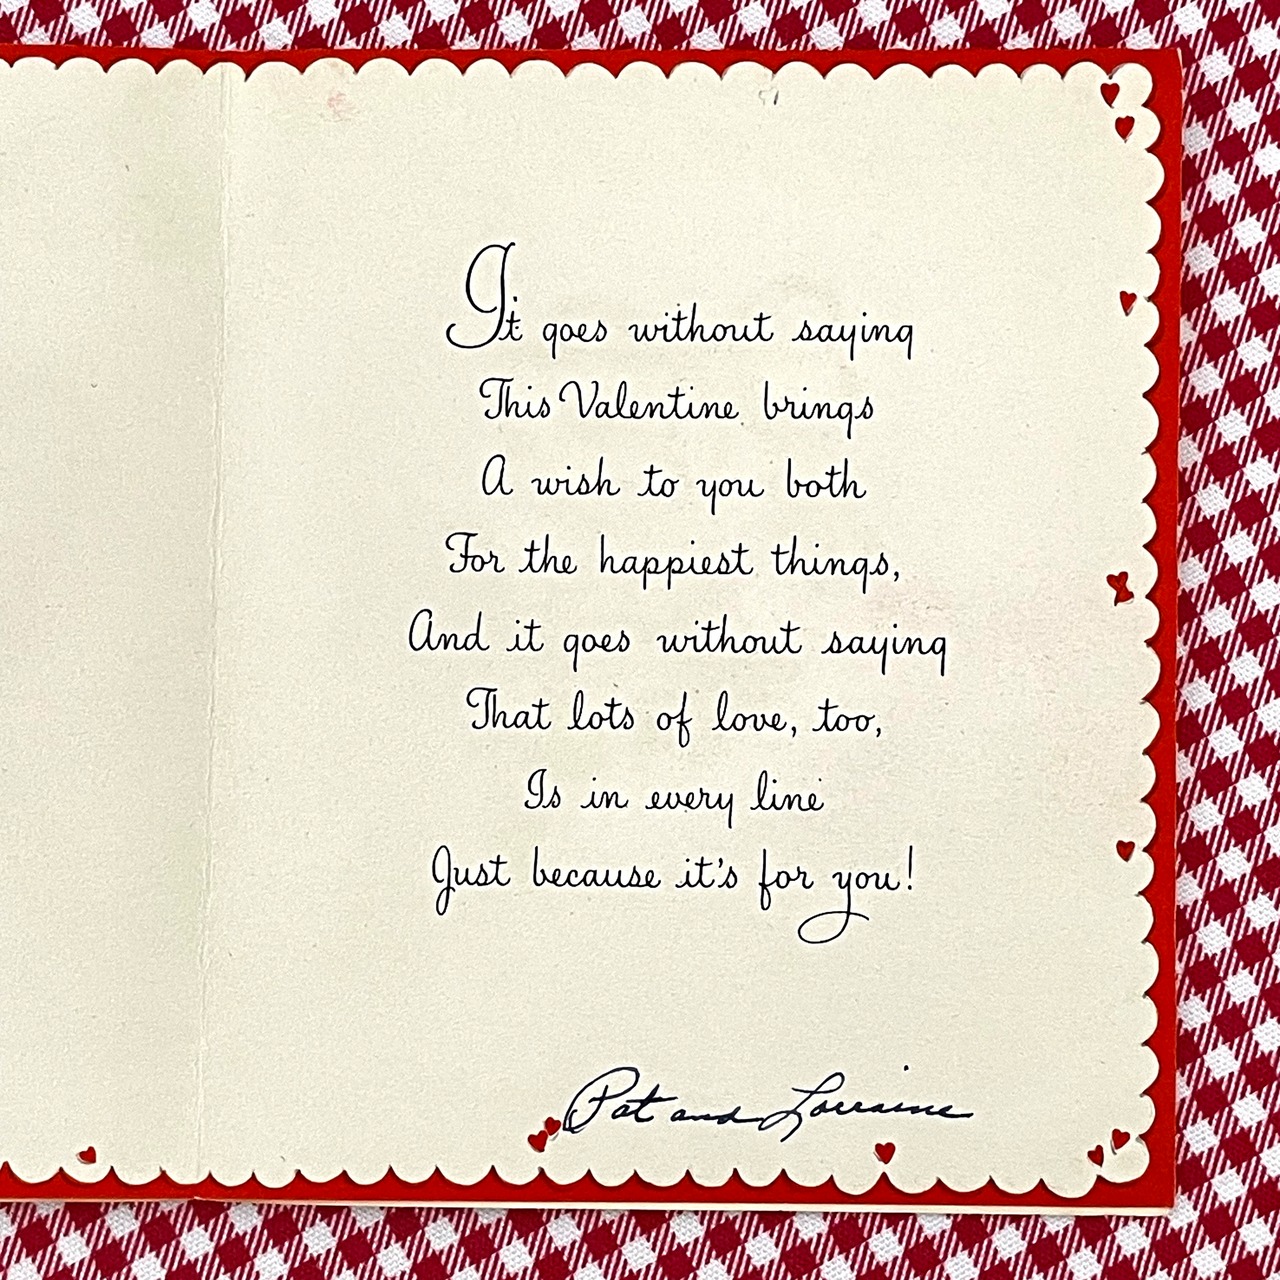 It goes without saying
This Valentine brings
A wish to you both
For the happiest things,
And it goes without saying
That lots of love, too,
Is in every line
Just because it's for you!
Pat and Lorraine